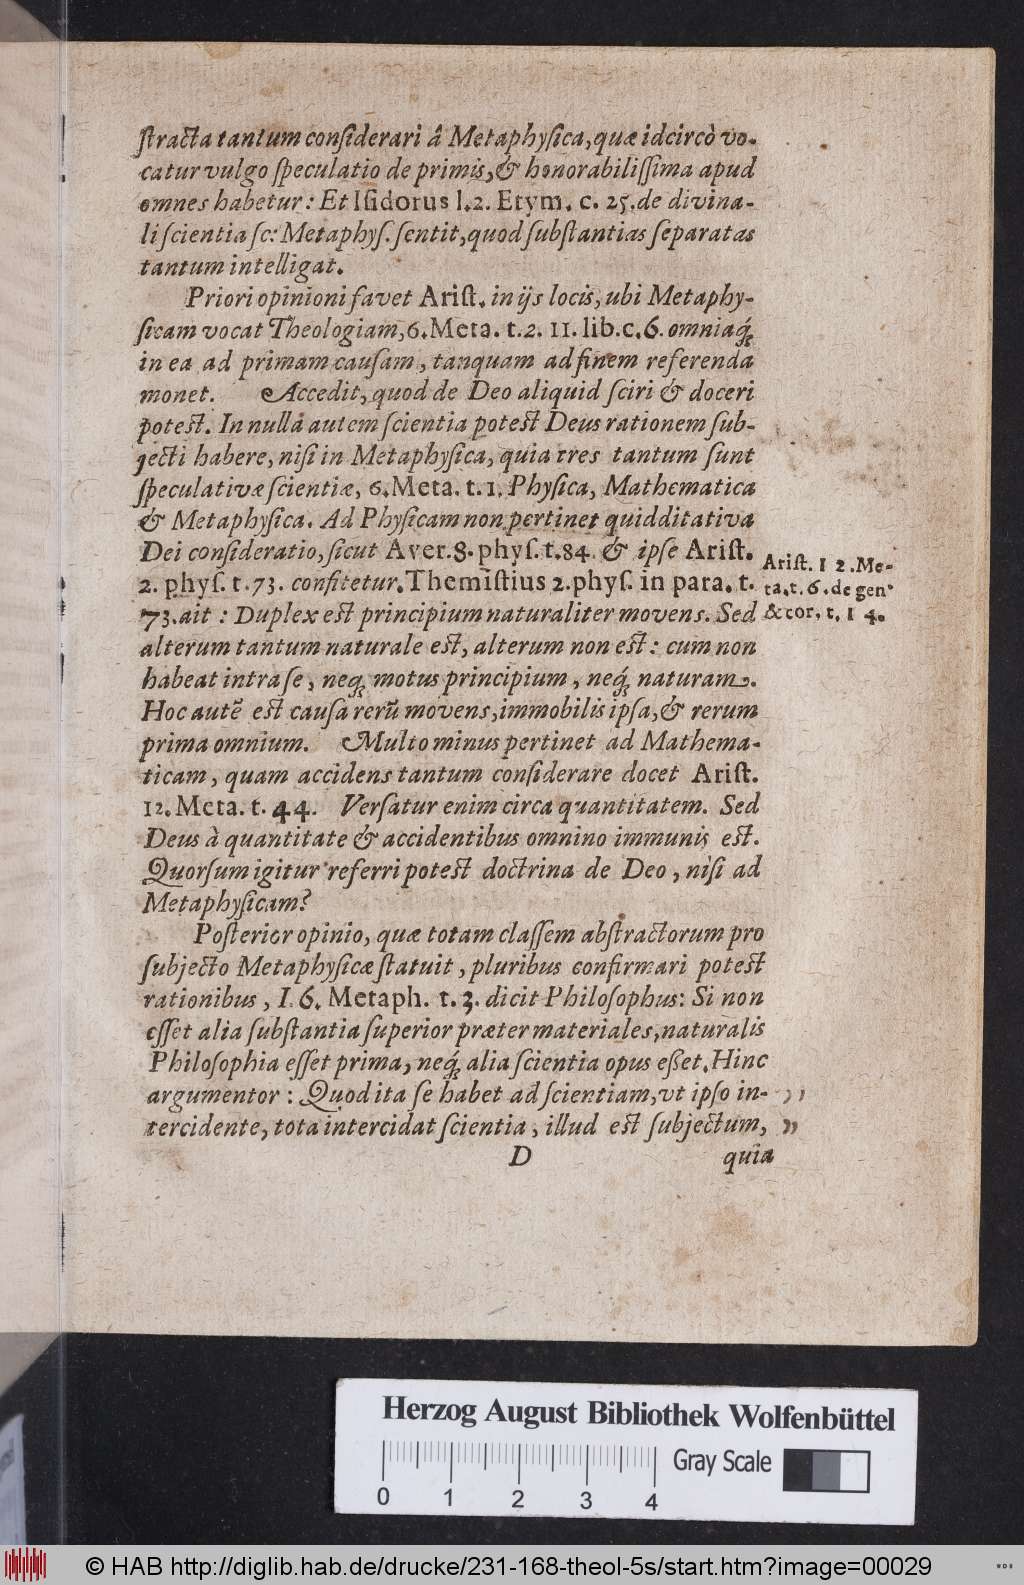 ſtracta tantum conſiderari â Metaphyſica, quæ idcircò vo-
catur vulgo ſpeculatio de primis, & honorabiliſſima apud
omnes habetur: Et Iſidorus l.2. Etym. c. 25. de divina-
li ſcientia ſc: Metaphyſ. ſentit, quod ſubſtantias ſeparatas
tantum intelligat.
Priori opinioni favet Ariſt. in ijs locis, ubi Metaphy-
ſicam vocat Theologiam, 6. Meta. t. 2. 11. lib. c. 6. omniaq́;
in ea ad primam cauſam, tanquam ad finem referenda
monet. Accedit, quod de Deo aliquid ſciri & doceri
poteſt. In nullâ autem ſcientia poteſt Deus rationem ſub-
jecti habere, niſi in Metaphyſica, quia tres tantum ſunt
ſpeculativæ ſcientiæ, 6. Meta. t. 1. Phyſica, Mathematica
& Metaphyſica. Ad Phyſicam non pertinet quidditativa
Dei conſideratio, ſicut Aver. 8. phyſ. t. 84. & ipſe Ariſt.
2. phyſ. t. 73. confitetur. Themiſtius 2. phyſ. in para. t.
73. ait: Duplex eſt principium naturaliter movens. Sed
alterum tantum naturale eſt, alterum non eſt: cum non
habeat intra ſe, neq; motus principium, neq́; naturam.
Hoc autē eſt cauſa rerū movens, immobilis ipſa, & rerum
prima omnium. Multo minus pertinet ad Mathema-
ticam, quam accidens tantum conſiderare docet Ariſt.
12. Meta. t. 44. Verſatur enim circa quantitatem. Sed
Deus à quantitate & accidentibus omnino immunis eſt.
Quorſum igitur referri poteſt doctrina de Deo, niſi ad
Metaphyſicam?
Poſterior opinio, quæ totam claſſem abſtractorum pro
ſubjecto Metaphyſicæ ſtatuit, pluribus confirmari poteſt
rationibus, I. 6. Metaph. t. 3. dicit Philoſophus: Si non
eſſet alia ſubſtantia ſuperior præter materiales, naturalis
Philoſophia eſſet prima, neq́; alia ſcientia opus eßet. Hinc
argumentor: Quod ita ſe habet ad ſcientiam, vt ipſo in- ,,
tercidente, tota intercidat ſcientia, illud eſt ſubjectum, ,,
D quia
Ariſt. 12. Me-
ta. t. 6. de gen.
& cor. t. 14.
Herzog August Bibliothek Wolfenbüttel
Gray Scale
0 1 2 3 4
© HAB http://diglib.hab.de/drucke/231-168-theol-5s/start.htm?image=00029